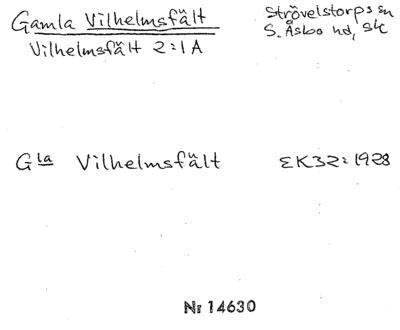 Gamla Vilhelmsfält
Strövelstorps sn
Vilhelmsfält 2:1A
S. Åsbo hd, Sk
Gla Vilhelmsfält EK32:1928
Nr 14630